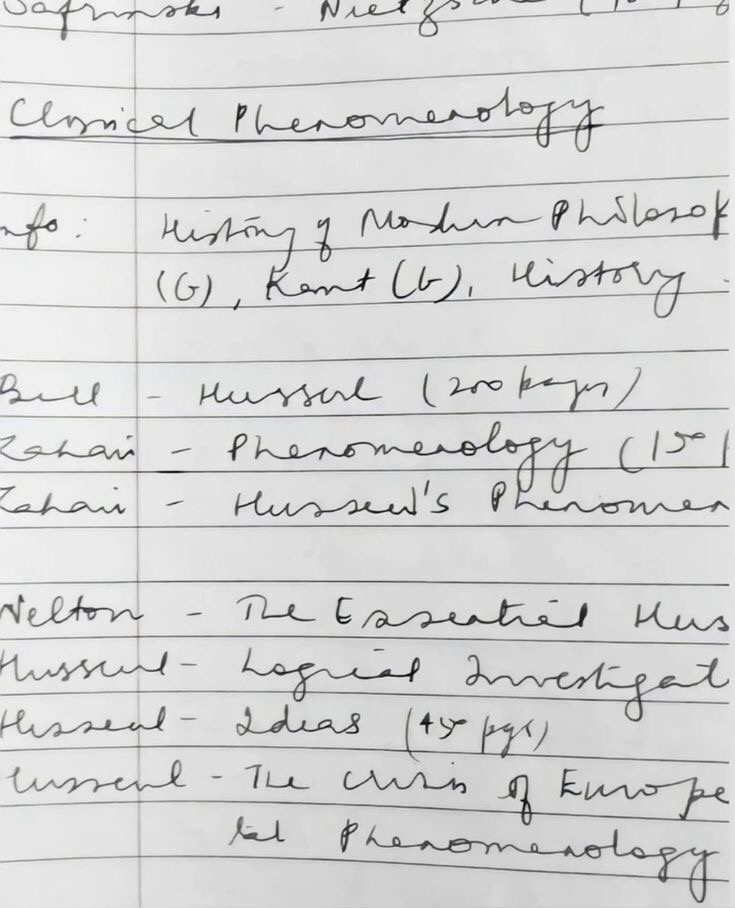 Safranski - Nietzsche (
Classical Phenomenology
nfo: History of Modern Philosop
(G), Kant (G), History
Bell - Husserl (200 pages)
Zahavi - Phenomenology (150 p
Zahavi - Husserl's Phenomen
Welton - The Essential Hus
Husserl - Logical Investigat
Husserl - Ideas (450 pgs)
Husserl - The Crisis of Europe
Phenomenology